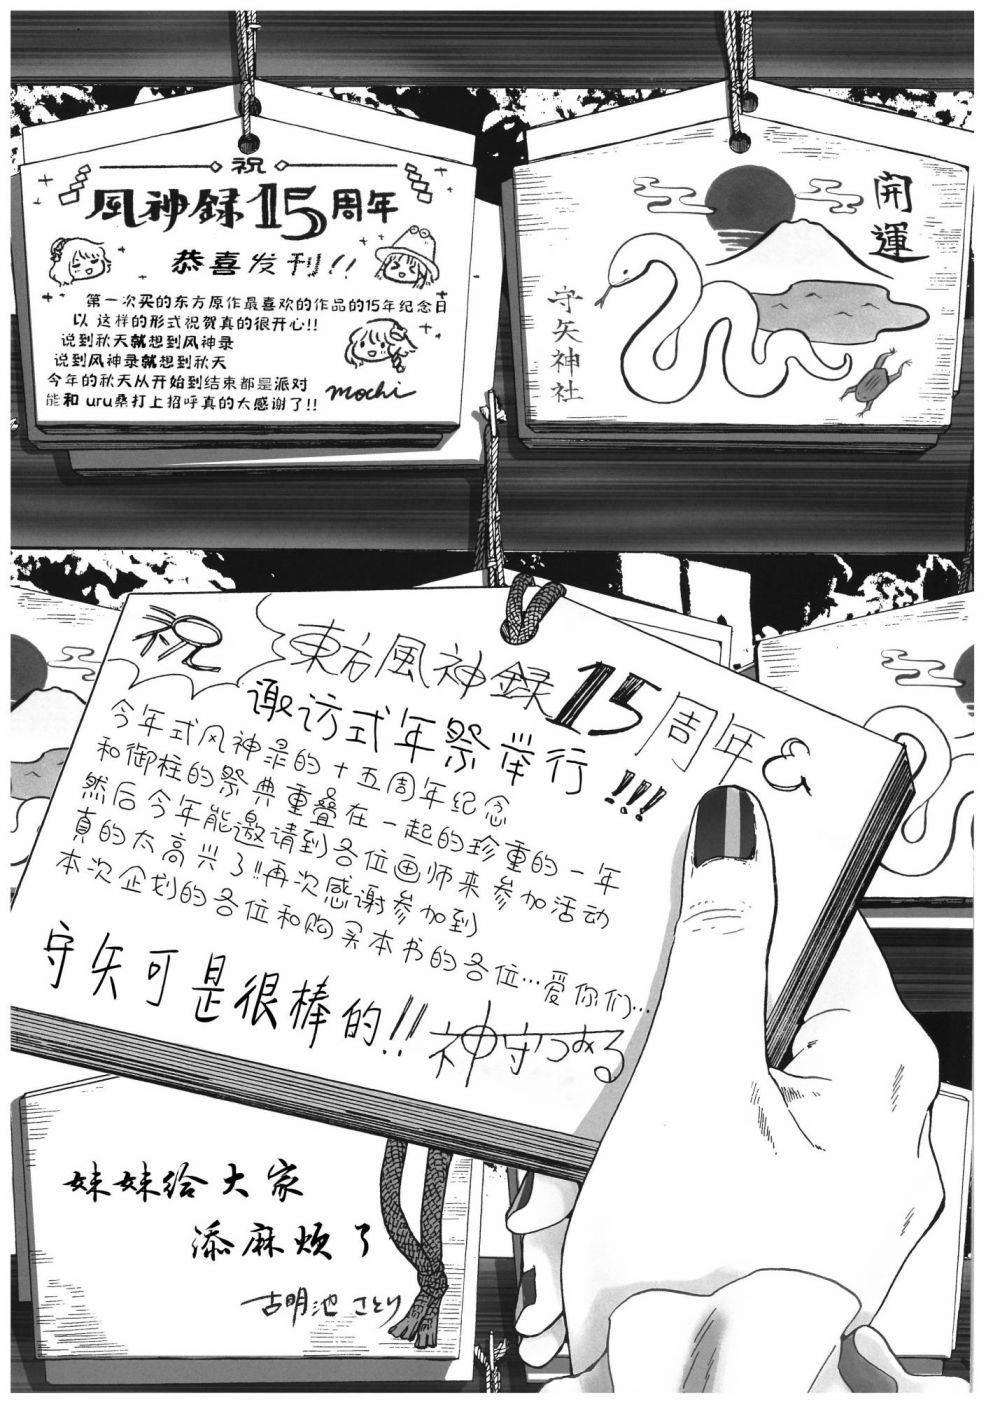 祝
風神録15周年
恭喜发刊!!
第一次买的东方原作最喜欢的作品的15年纪念日
以 这样的形式祝贺真的很开心!!
说到秋天就想到风神录
说到风神录就想到秋天
今年的秋天从开始到结束都是派对
能和 uru桑打上招呼真的太感谢了!!
mochi
開運
守矢神社
祝
東方風神録15周年&
诹访式年祭举行!!!
今年式风神录的十五周年纪念
和御柱的祭典重叠在一起的珍重的一年
然后今年能邀请到各位画师来参加活动
真的太高兴了!!再次感谢参加到
本次企划的各位和购买本书的各位…爱你们…
守矢可是很棒的!!
神守つぁる
妹妹给大家
添麻烦了
古明池 さとり